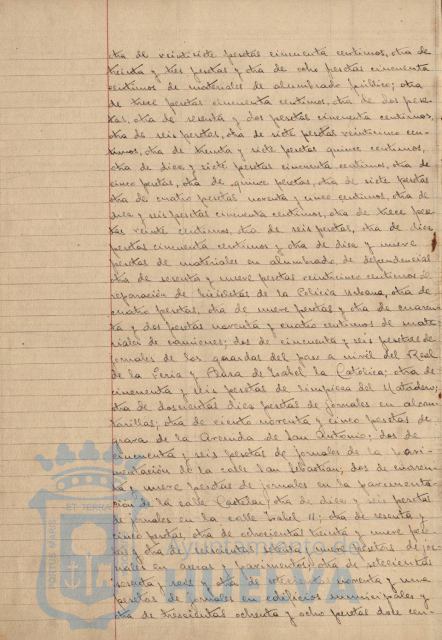 otra de veintisiete pesetas cincuenta centimos, otra de
treinta y tres pesetas y otra de ocho pesetas cincuenta
centimos de materiales de alumbrado público; otra
de trece pesetas cincuenta centimos, otra de dos pese-
tas, otra de sesenta y dos pesetas cincuenta centimos,
otra de seis pesetas, otra de siete pesetas veinticinco cen-
timos, otra de treinta y siete pesetas quince centimos,
otra de diez y siete pesetas cincuenta centimos, otra de
cinco pesetas, otra de quince pesetas, otra de siete pesetas
otra de cuatro pesetas noventa y cinco centimos, otra de
diez y seis pesetas cincuenta centimos, otra de trece pese-
tas veinte centimos, otra de seis pesetas, otra de diez
pesetas cincuenta centimos y otra de diez y nueve
pesetas de materiales en alumbrado de dependencias
otra de sesenta y nueve pesetas veinticinco centimos de
reparación de bicicletas de la Policia Urbana, otra de
cuatro pesetas, otra de nueve pesetas y otra de cuaren-
ta y dos pesetas noventa y cuatro centimos de mate-
riales de camiones; dos de cincuenta y seis pesetas de
jornales de los guardas del paso a nivel del Real
de la Feria y Plaza de Isabel la Católica; otra de
cincuenta y seis pesetas de limpieza del Matadero;
otra de doscientas diez pesetas de jornales en alcan-
tarillas; otra de ciento noventa y cinco pesetas de
grava de la Avenida de San Antonio; dos de
cincuenta y seis pesetas de jornales de la pavi-
mentación de la calle San Sebastián; dos de cuaren-
ta y nueve pesetas de jornales en la pavimenta-
ción de la calle Castilla; otra de diez y seis pesetas
de jornales en la calle Isabel II; otra de sesenta y
cinco pesetas, otra de ochocientas treinta y nueve pese-
tas y otra de seiscientas setenta y nueve pesetas de jor-
nales en aceras y pavimentos; otra de setecientas
y seis y otra de noventa y una
pesetas de jornales en edificios municipales y
otra de trescientas ochenta y ocho pesetas doce cen
PORTUS MARIS ET TERRAE
Ayuntamiento